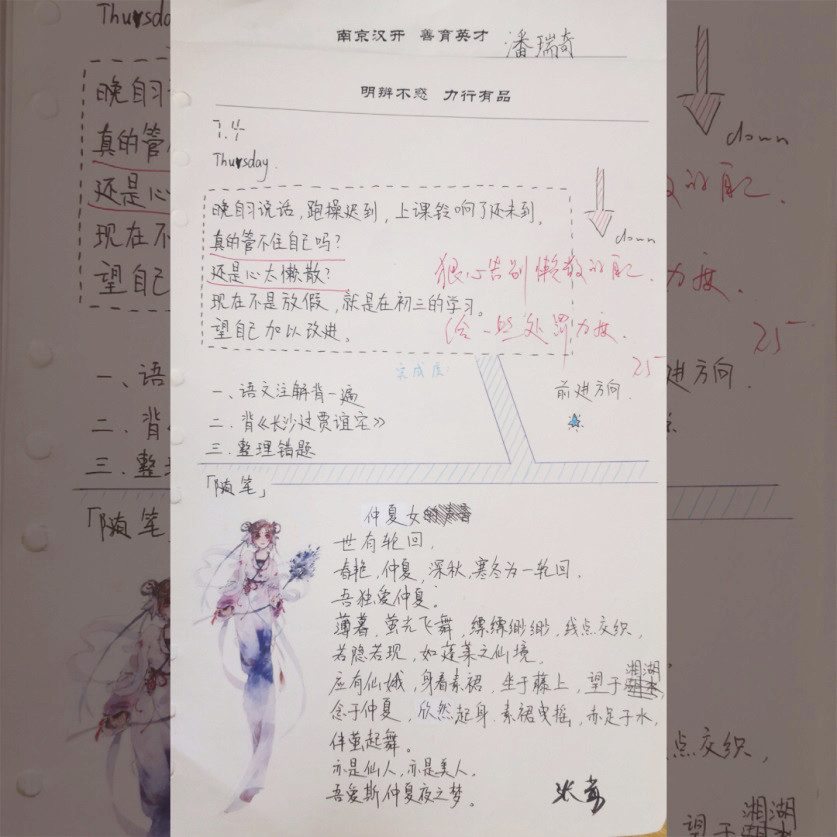 南京汉开 善育英才 潘瑞奇
明辨不惑 力行有品
7.4
Thursday.
晚自习说话,跑操迟到,上课铃响了还未到。
真的管不住自己吗?
还是心太懒散?
现在不是放假,就是在初三的学习。
望自己加以改进。
down
狠心告别懒散的自己.
给一些处罚力度.
25
完成度
一、语文注解背一遍
二.背《长沙过贾谊宅》
三.整理错题
前进方向.
「随笔」
仲夏女
世有轮回,
春艳,仲夏,深秋,寒冬为一轮回.
吾独爱仲夏。
薄暮,萤光飞舞,缥缥缈缈,线点交织,
若隐若现,如蓬莱之仙境.
应有仙娥,身着素裙,坐于藤上,望于湘湖,
念于仲夏,欣然起身.素裙曳摇,赤足于水,
伴萤起舞。
亦是仙人,亦是美人.
吾爱斯仲夏夜之梦。